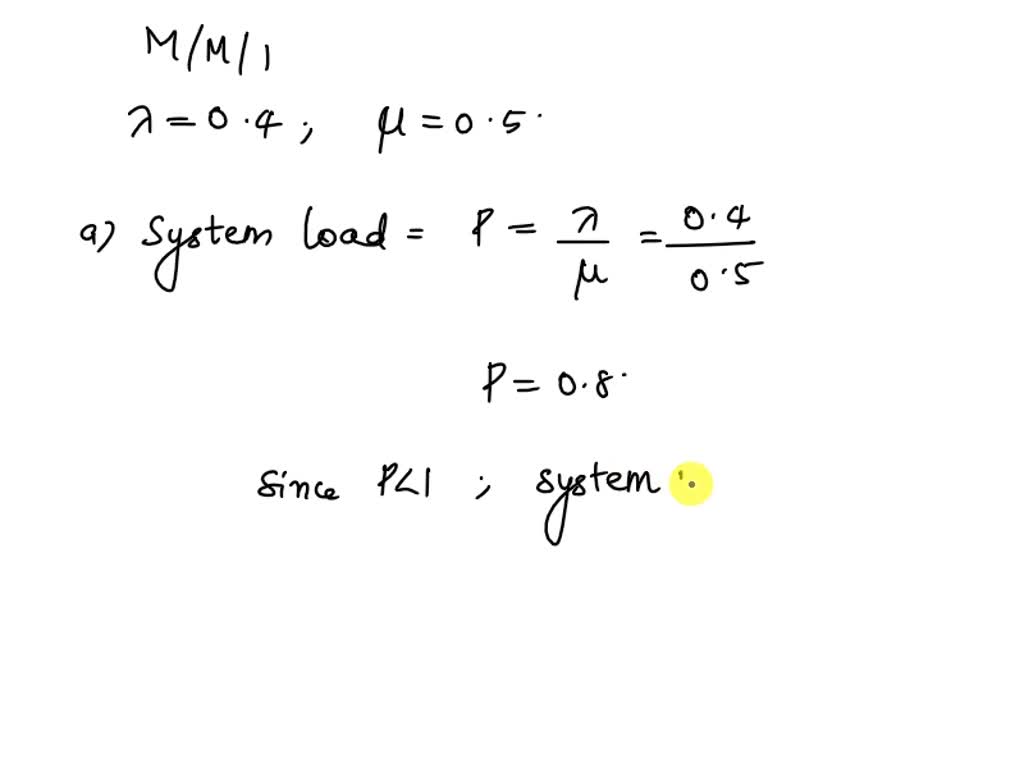 M/M/1
λ = 0.4 ; μ = 0.5.
a) System load = P = λ/μ = 0.4/0.5
P = 0.8.
Since P<1 ; system